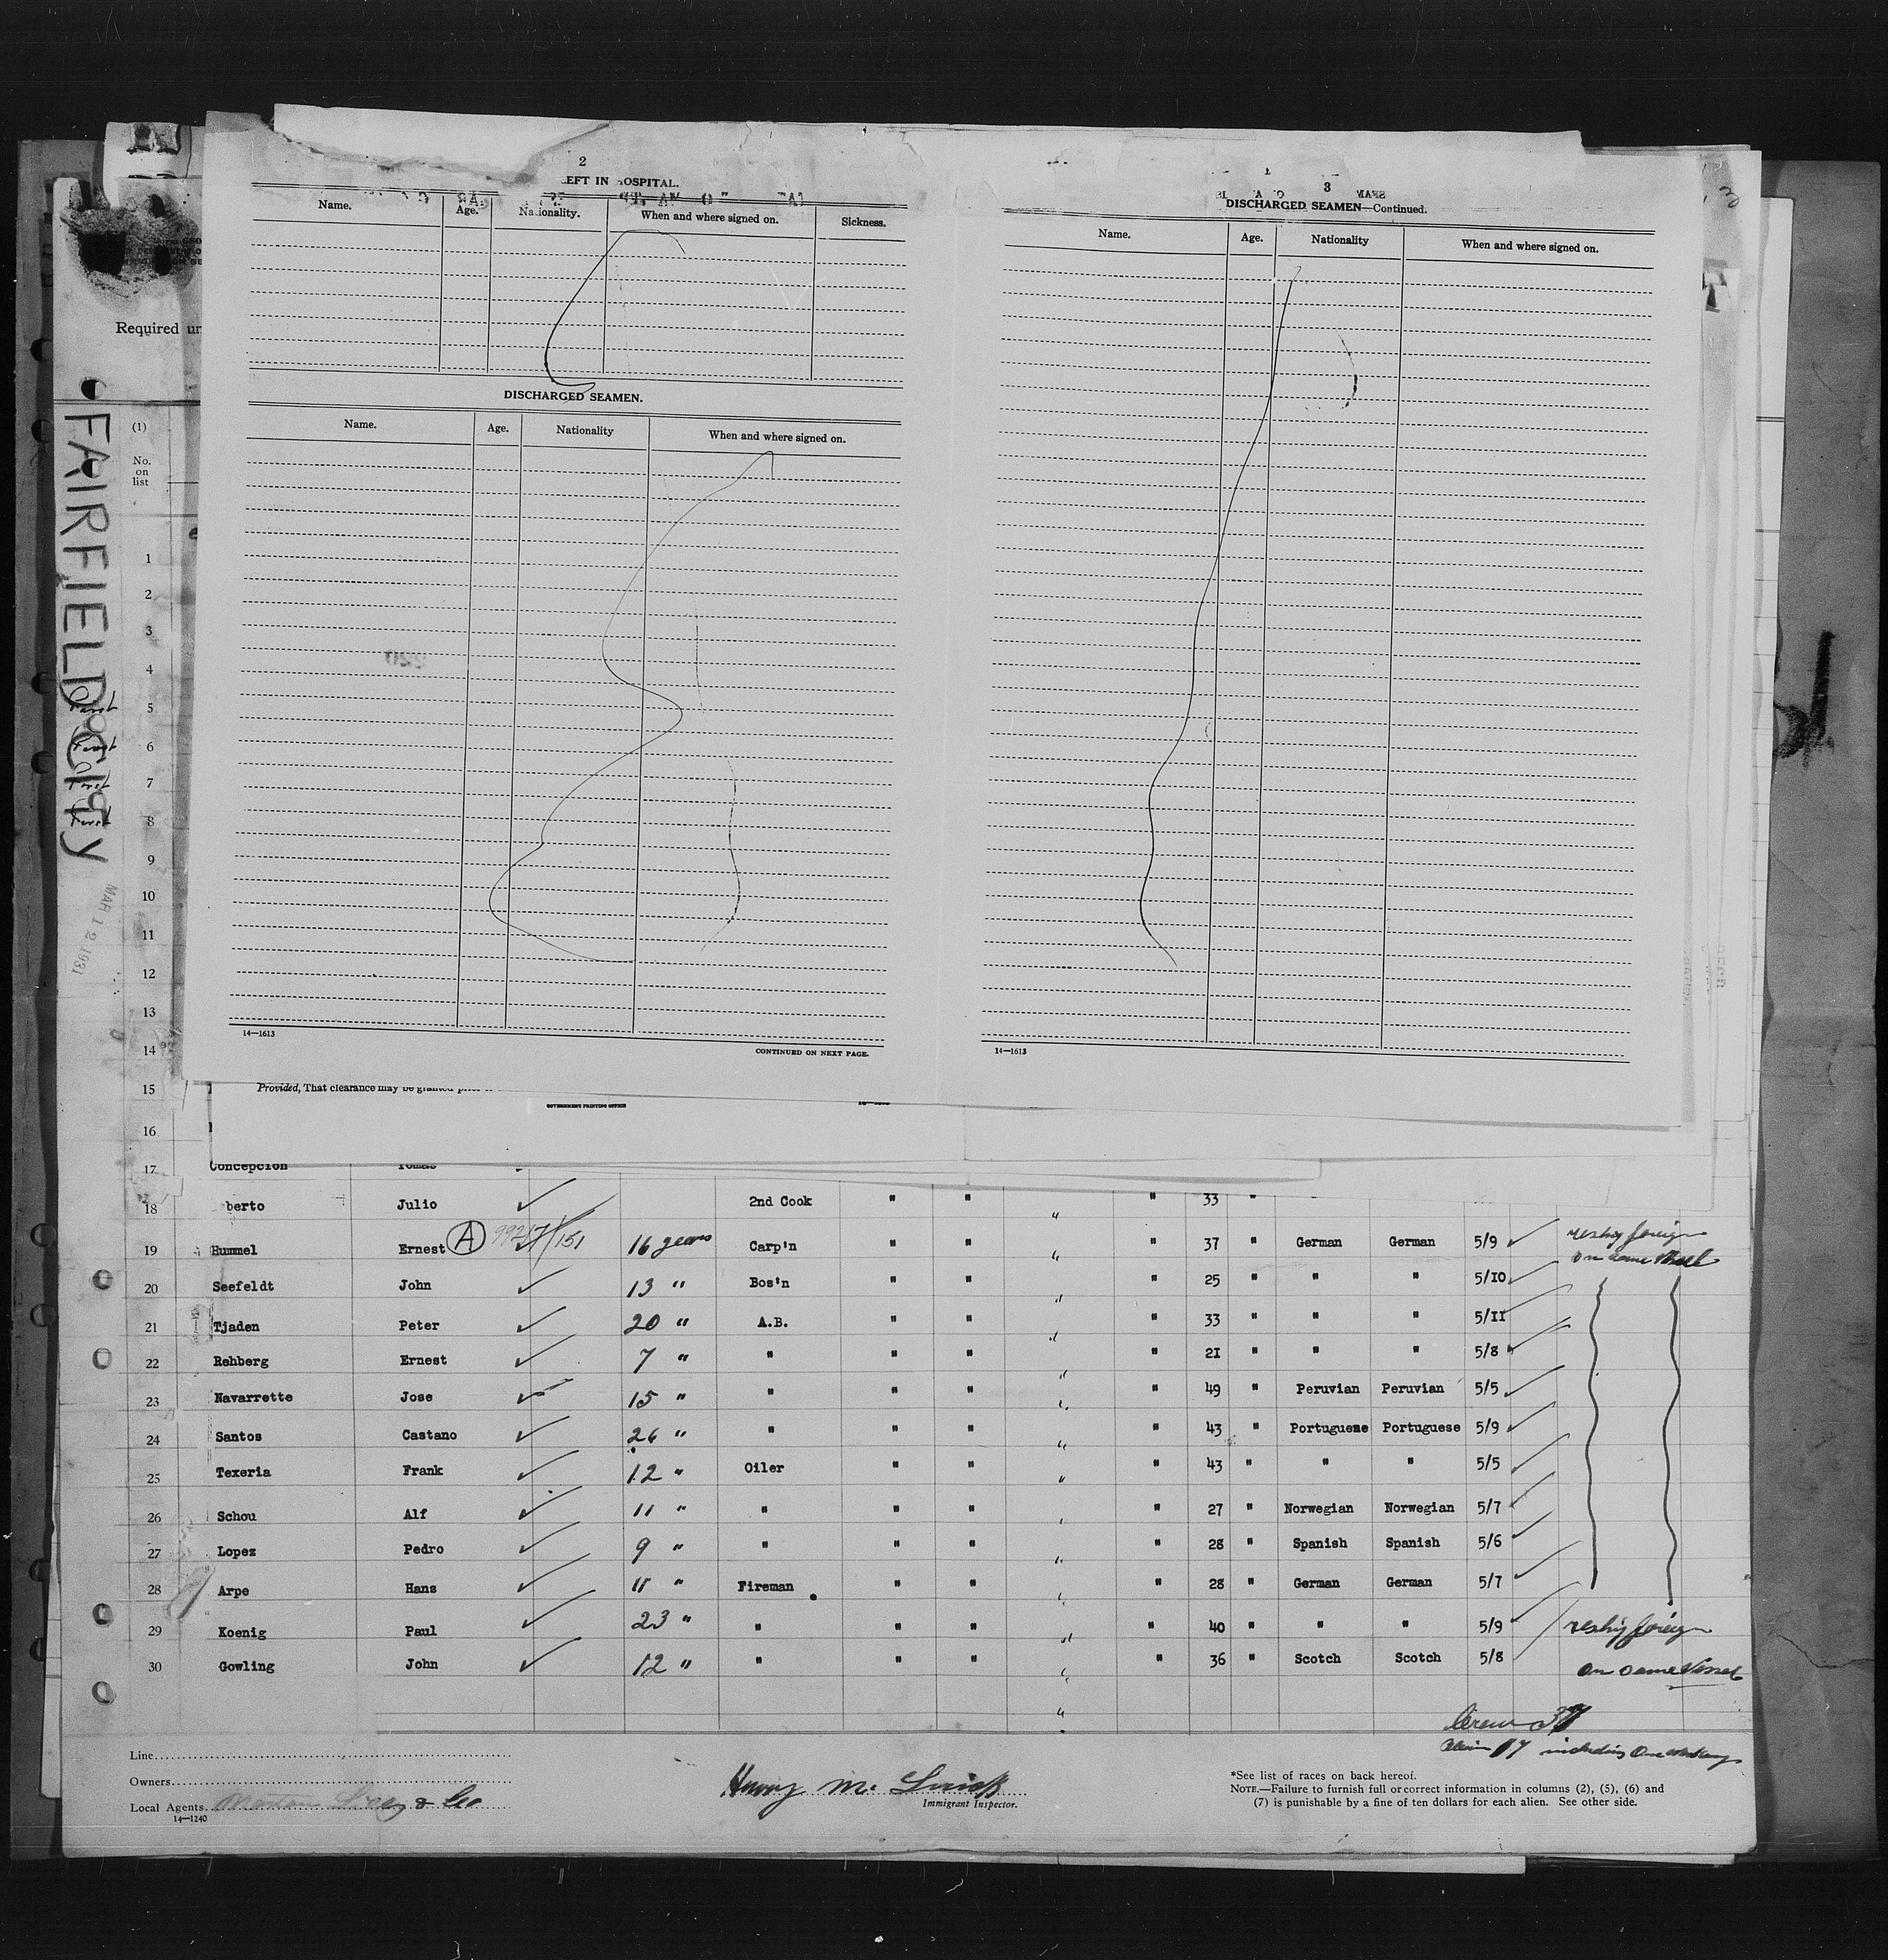 2
EFT IN HOSPITAL.
Name. Age. Nationality. When and where signed on. Sickness.
DISCHARGED SEAMEN.
Name. Age. Nationality When and where signed on.
14—1613
CONTINUED ON NEXT PAGE.
3
DISCHARGED SEAMEN—Continued.
Name. Age. Nationality When and where signed on.
14—1613
Required un
FAIRFIELD City
MAR 12 1931
(1)
No.
on
list
1
2
3
4
First 5
First 6
First 7
First 8
9
10
11
12
13
14
15
16
Provided, That clearance may be granted
GOVERNMENT PRINTING OFFICE
17 Concepcion Tomas
18 berto Julio 2nd Cook " " " " 33 "
19 Hummel Ernest A 16 years Carp'n " " " " 37 " German German 5/9 reship foreign
on same vessel
20 Seefeldt John 13 " Bos'n " " " " 25 " " " 5/10
21 Tjaden Peter 20 " A.B. " " " " 33 " " " 5/11
22 Rehberg Ernest 7 " " " " " " 21 " " " 5/8
23 Navarrette Jose 15 " " " " " " 49 " Peruvian Peruvian 5/5
24 Santos Castano 26 " " " " " " 43 " Portuguese Portuguese 5/9
25 Texeria Frank 12 " Oiler " " " " 43 " " " 5/5
26 Schou Alf 11 " " " " " " 27 " Norwegian Norwegian 5/7
27 Lopez Pedro 9 " " " " " " 28 " Spanish Spanish 5/6
28 Arpe Hans 11 " Fireman " " " " 28 " German German 5/7
29 Koenig Paul 23 " " " " " " 40 " " " 5/9 reship foreign
30 Gowling John 12 " " " " " " 36 " Scotch Scotch 5/8 on same vessel
Crew 37
17 including one
Line
Owners
Local Agents & Co
14—1240
Harry Mc
Immigrant Inspector.
*See list of races on back hereof.
NOTE.—Failure to furnish full or correct information in columns (2), (5), (6) and
(7) is punishable by a fine of ten dollars for each alien. See other side.